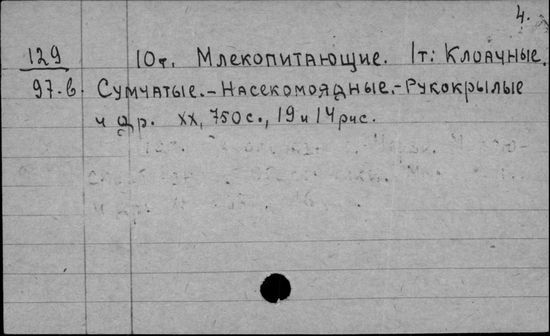 4.
129 10 т. Млекопитающие. 1 т: Клоачные.
97-в Сумчатые.-Насекомоядные.-Рукокрылые
и др. XX, 750 с., 19 и 14 рис.